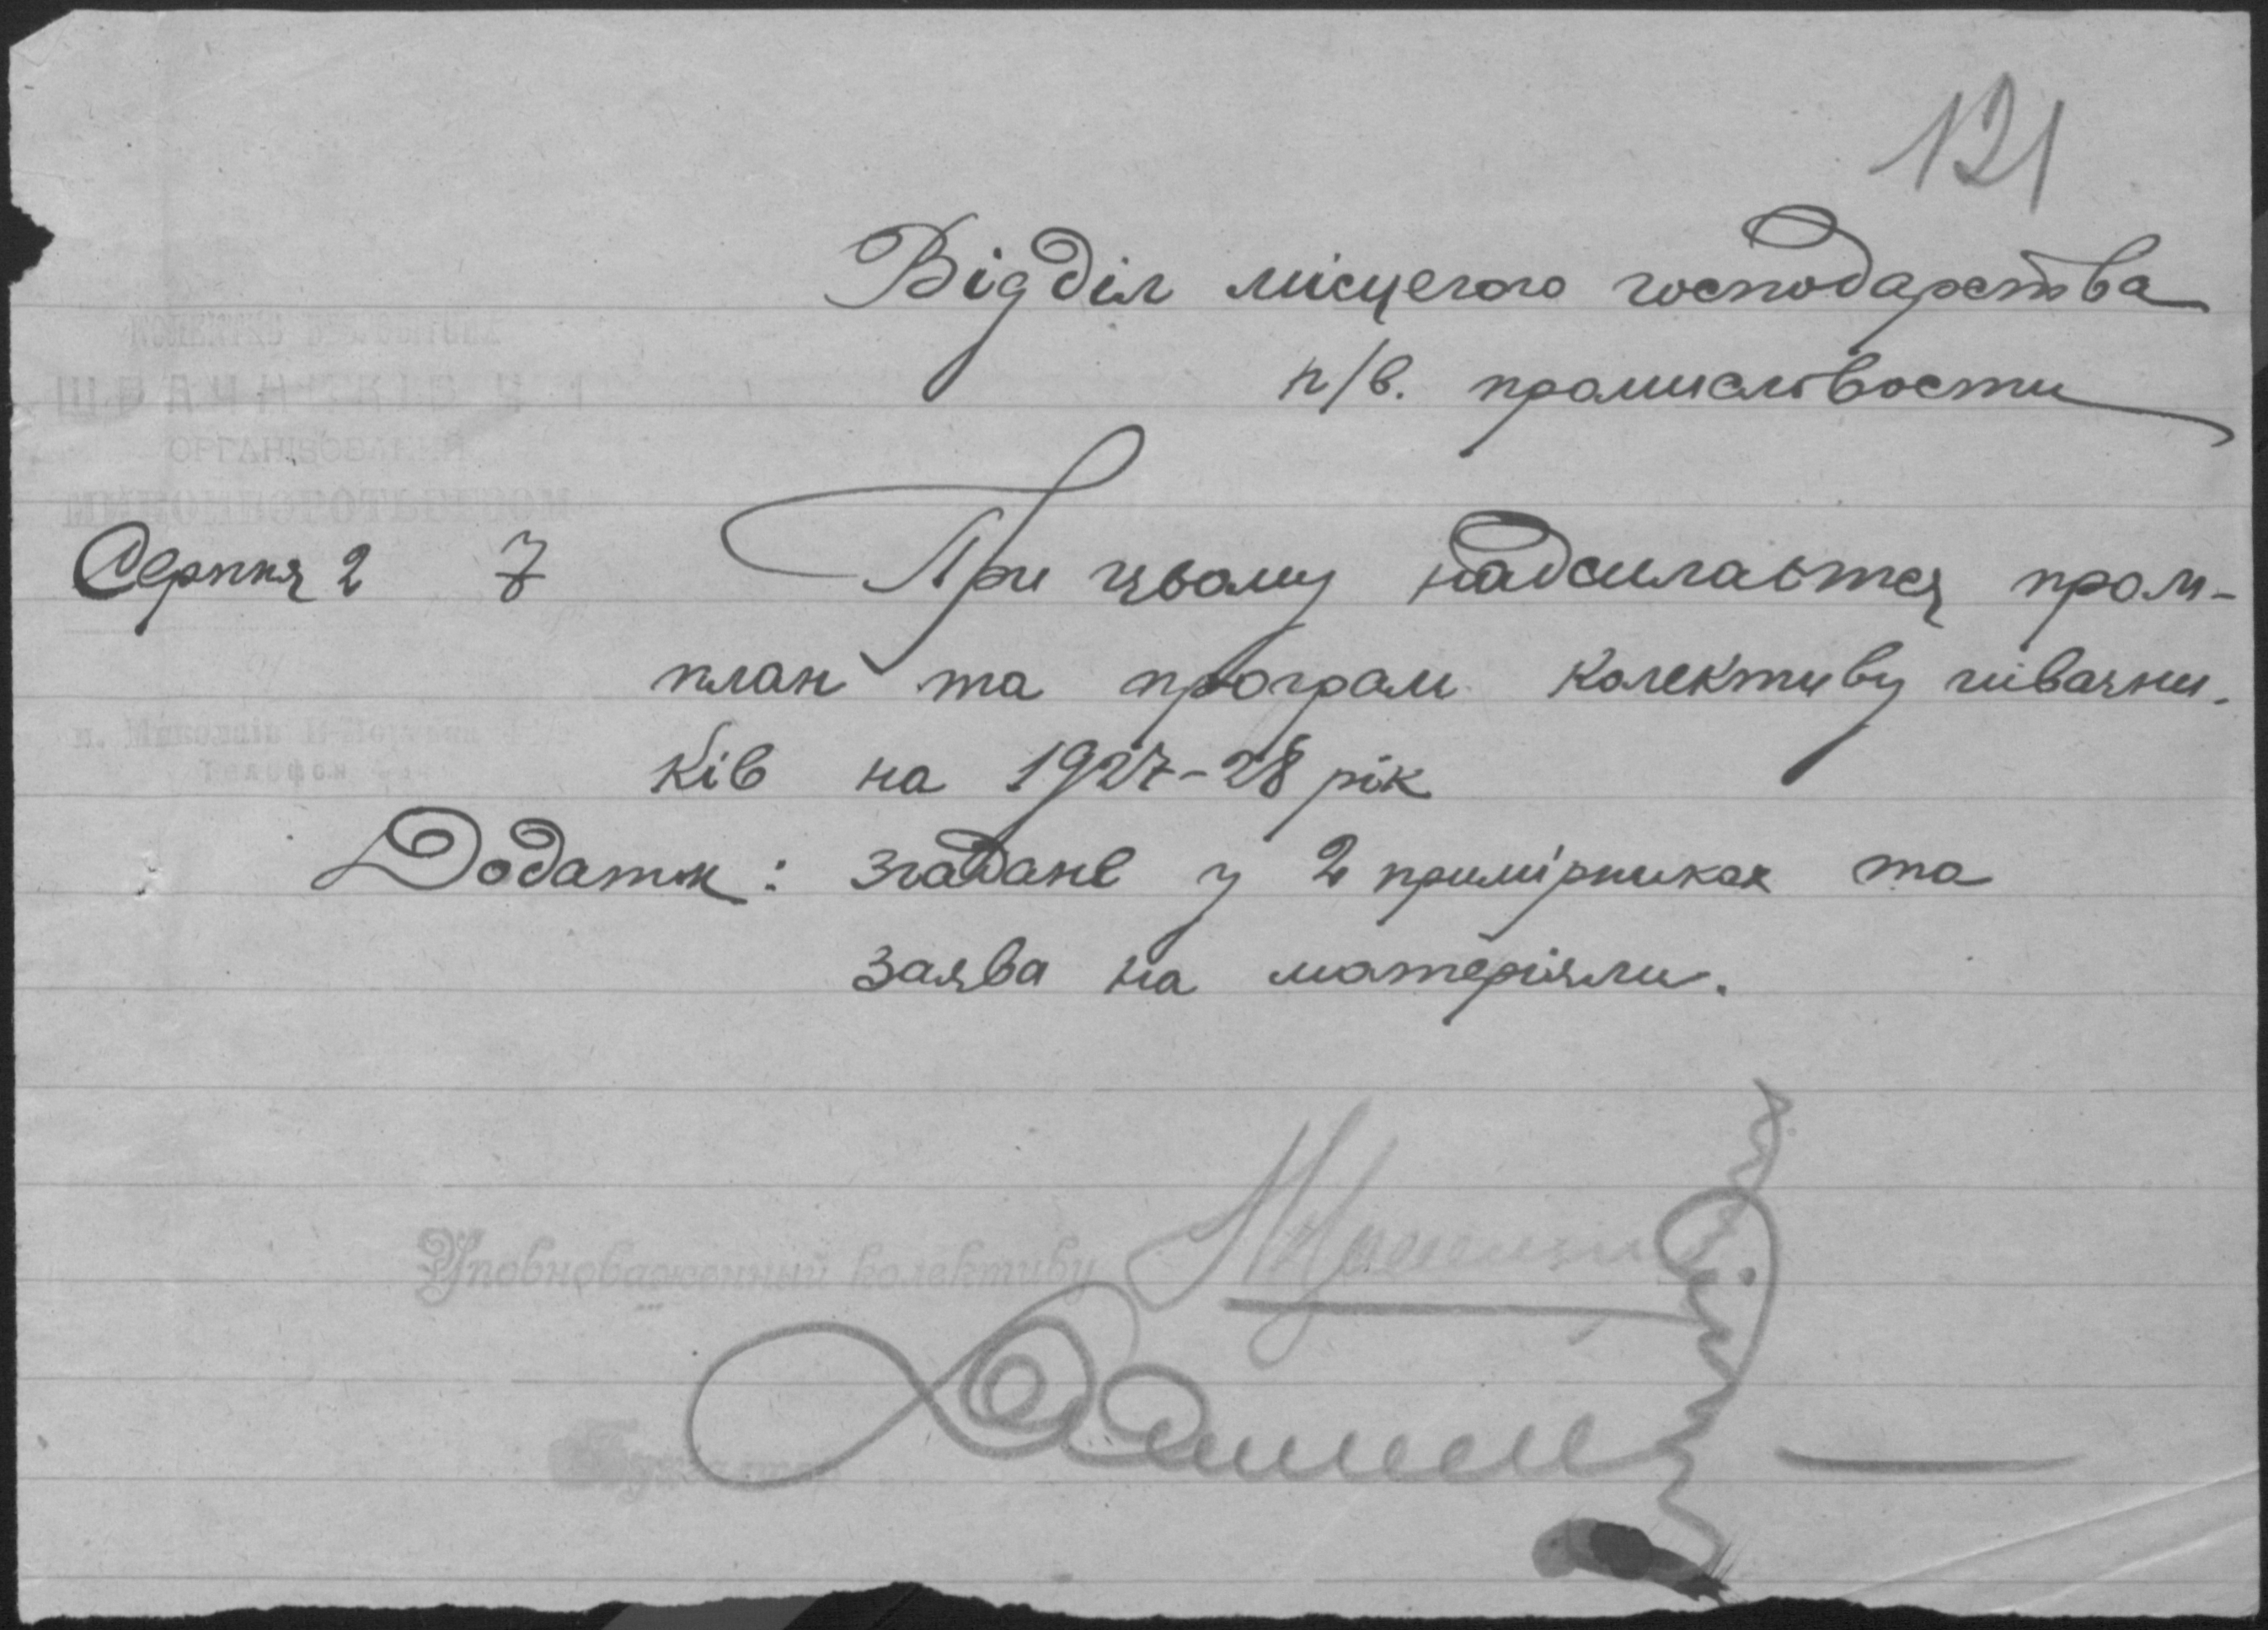 121
Відділ місцевого господарства
п/в. промисловости
КОЛЕКТИВ
ШВАЧНИКІВ Ч 1
ОРГАНІЗОВАНИЙ
Серпня 2 7 При цьому надсилається пром-
план та програм колективу швачни-
ків на 1927-28 рік
м. Миколаїв
Телефон
Додаток: згадане у 2 примірниках та
заява на матеріяли.
Уповноваженний колективу